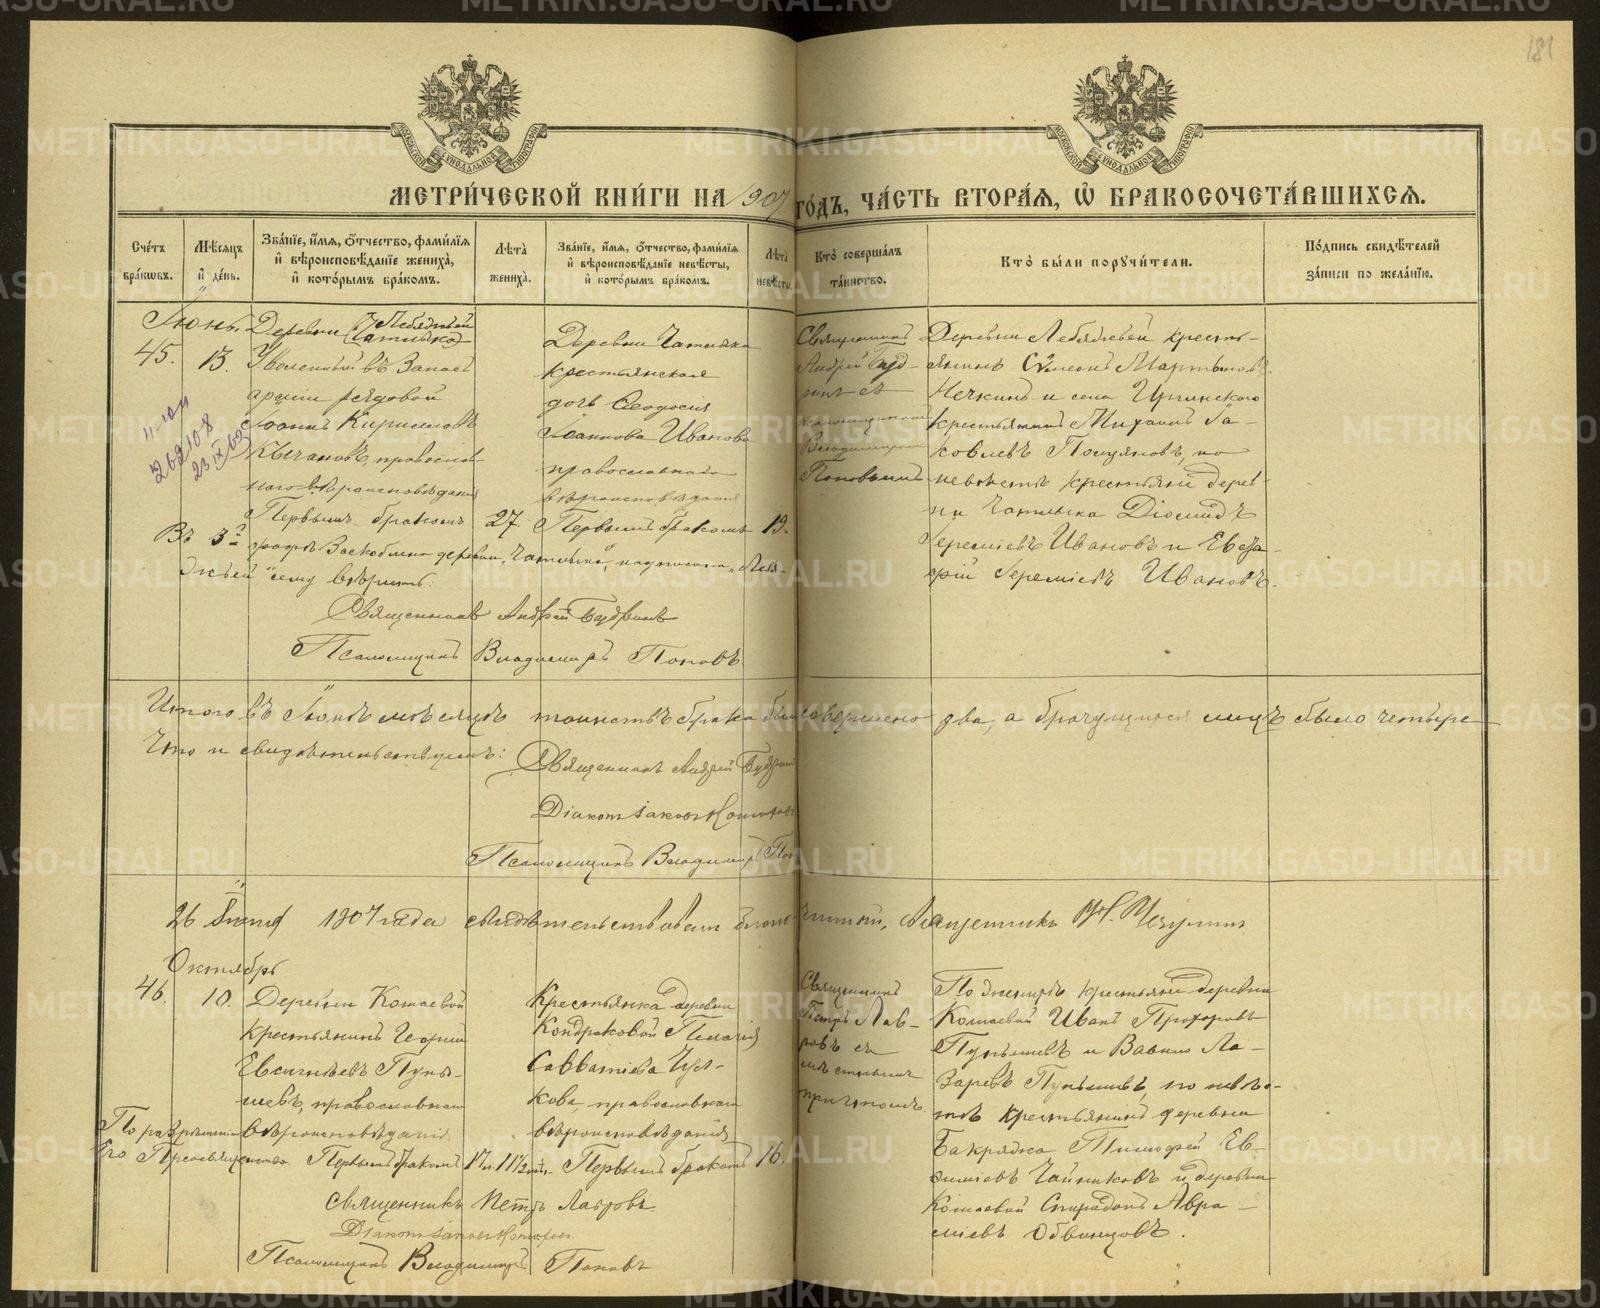 181
МЕТРИ́ЧЕСКОЙ КНИ́ГИ НА 1907 ГО́ДЪ, ЧА́СТЬ ВТОРА́Я, Ѡ҆ БРАКОСОЧЕТА́ВШИХСЯ.
Сче́тъ бра́ковъ.
Мѣ́сяцъ и҆ де́нь.
Зва́нїе, и҆́мя, о҆́тчество, фами́лїя и҆ вѣроисповѣ́данїе жениха̀, и҆ кото́рымъ бра́комъ.
Лѣта̀ жениха̀.
Зва́нїе, и҆́мя, о҆́тчество, фами́лїя и҆ вѣроисповѣ́данїе невѣ́сты, и҆ кото́рымъ бра́комъ.
Лѣта̀ невѣ́сты.
Кто̀ соверша́лъ та́инство.
Кто̀ бы́ли поручи́тели.
По́дпись свидѣ́телей за́писи по жела́нїю.
Іюнь.
45.
13.
Деревни Лебяжьей
(Чатлыка)
Уволенный въ Запасъ
арміи рядовой
Іоаннъ Кирилловъ
православ-
наго вѣроисповѣданія
Первымъ бракомъ
27.
Деревни Чатлыка
крестьянская
дочь Ѳеодосія
Іоаннова Иванова
православнаго
вѣроисповѣданія
Первымъ бракомъ
19.
Священникъ
Андрей Буд-
ринъ съ
псаломщикомъ
Владимиромъ
Поповымъ
Деревни Лебяжьей кресть-
янинъ Сѵмеонъ Мартыновъ
Нечкинъ и села Иргинского
крестьянинъ Михаилъ Іа-
ковлевъ по
невѣстѣ крестьяне дерев-
ни Чатлыка Діомидъ
Іереміевъ Ивановъ и
Іереміевъ Ивановъ.
262108
Въ 3й
графѣ Заскоблено деревни "Чатлыка", надписано "Леб-
яжьей" сему вѣрить.
Священникъ Андрей Будринъ
Псаломщикъ Владимиръ Поповъ
Итого въ Іюнѣ мѣсяцѣ таинствъ брака было совершено два, а брачущихся лицъ было четыре
Что и свидѣтельствуемъ: Священникъ Андрей Будринъ
Діаконъ Іаковъ
Псаломщикъ Владимиръ Поп
26 1907 года свидѣтельствовалъ
Октябрь
46.
10.
Деревни Комаевой
крестьянинъ Георгій
Евсигнѣевъ Пупы-
шевъ, православнаго
вѣроисповѣданія
Первымъ бракомъ
17 л. 11½ мѣс.
По разрѣшенію
Его Преосвященства.
Крестьянка деревни
Кондраковой Пелагія
Савватіева Чул-
кова, православнаго
вѣроисповѣданія
Первымъ бракомъ
16.
Священникъ
Петръ Лав-
ровъ съ
мѣстнымъ
причтомъ.
По женихѣ крестьяне деревни
Комаевой Иванъ Прохоровъ
Пупышевъ и Вавило Ла-
заревъ Пупышевъ, по невѣс-
тѣ крестьянинъ деревни
Бакряжа Тимофей Ев-
ѳиміевъ Чайниковъ и деревни
Комаевой Спиридонъ Авра-
міевъ Обвинцовъ.
Священникъ Петръ Лавровъ.
Діаконъ Іаковъ
Псаломщикъ Владимиръ Поповъ
METRIKI.GASO-URAL.RU